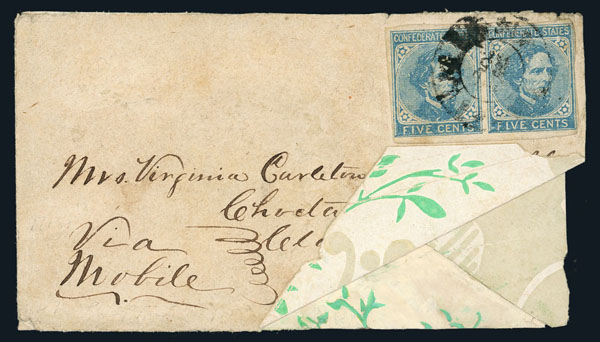 CONFEDERATE STATES
CONFEDERATE STATES
FIVE CENTS
FIVE CENTS
Mrs. Virginia Carleton
Chocta
Via
Mobile